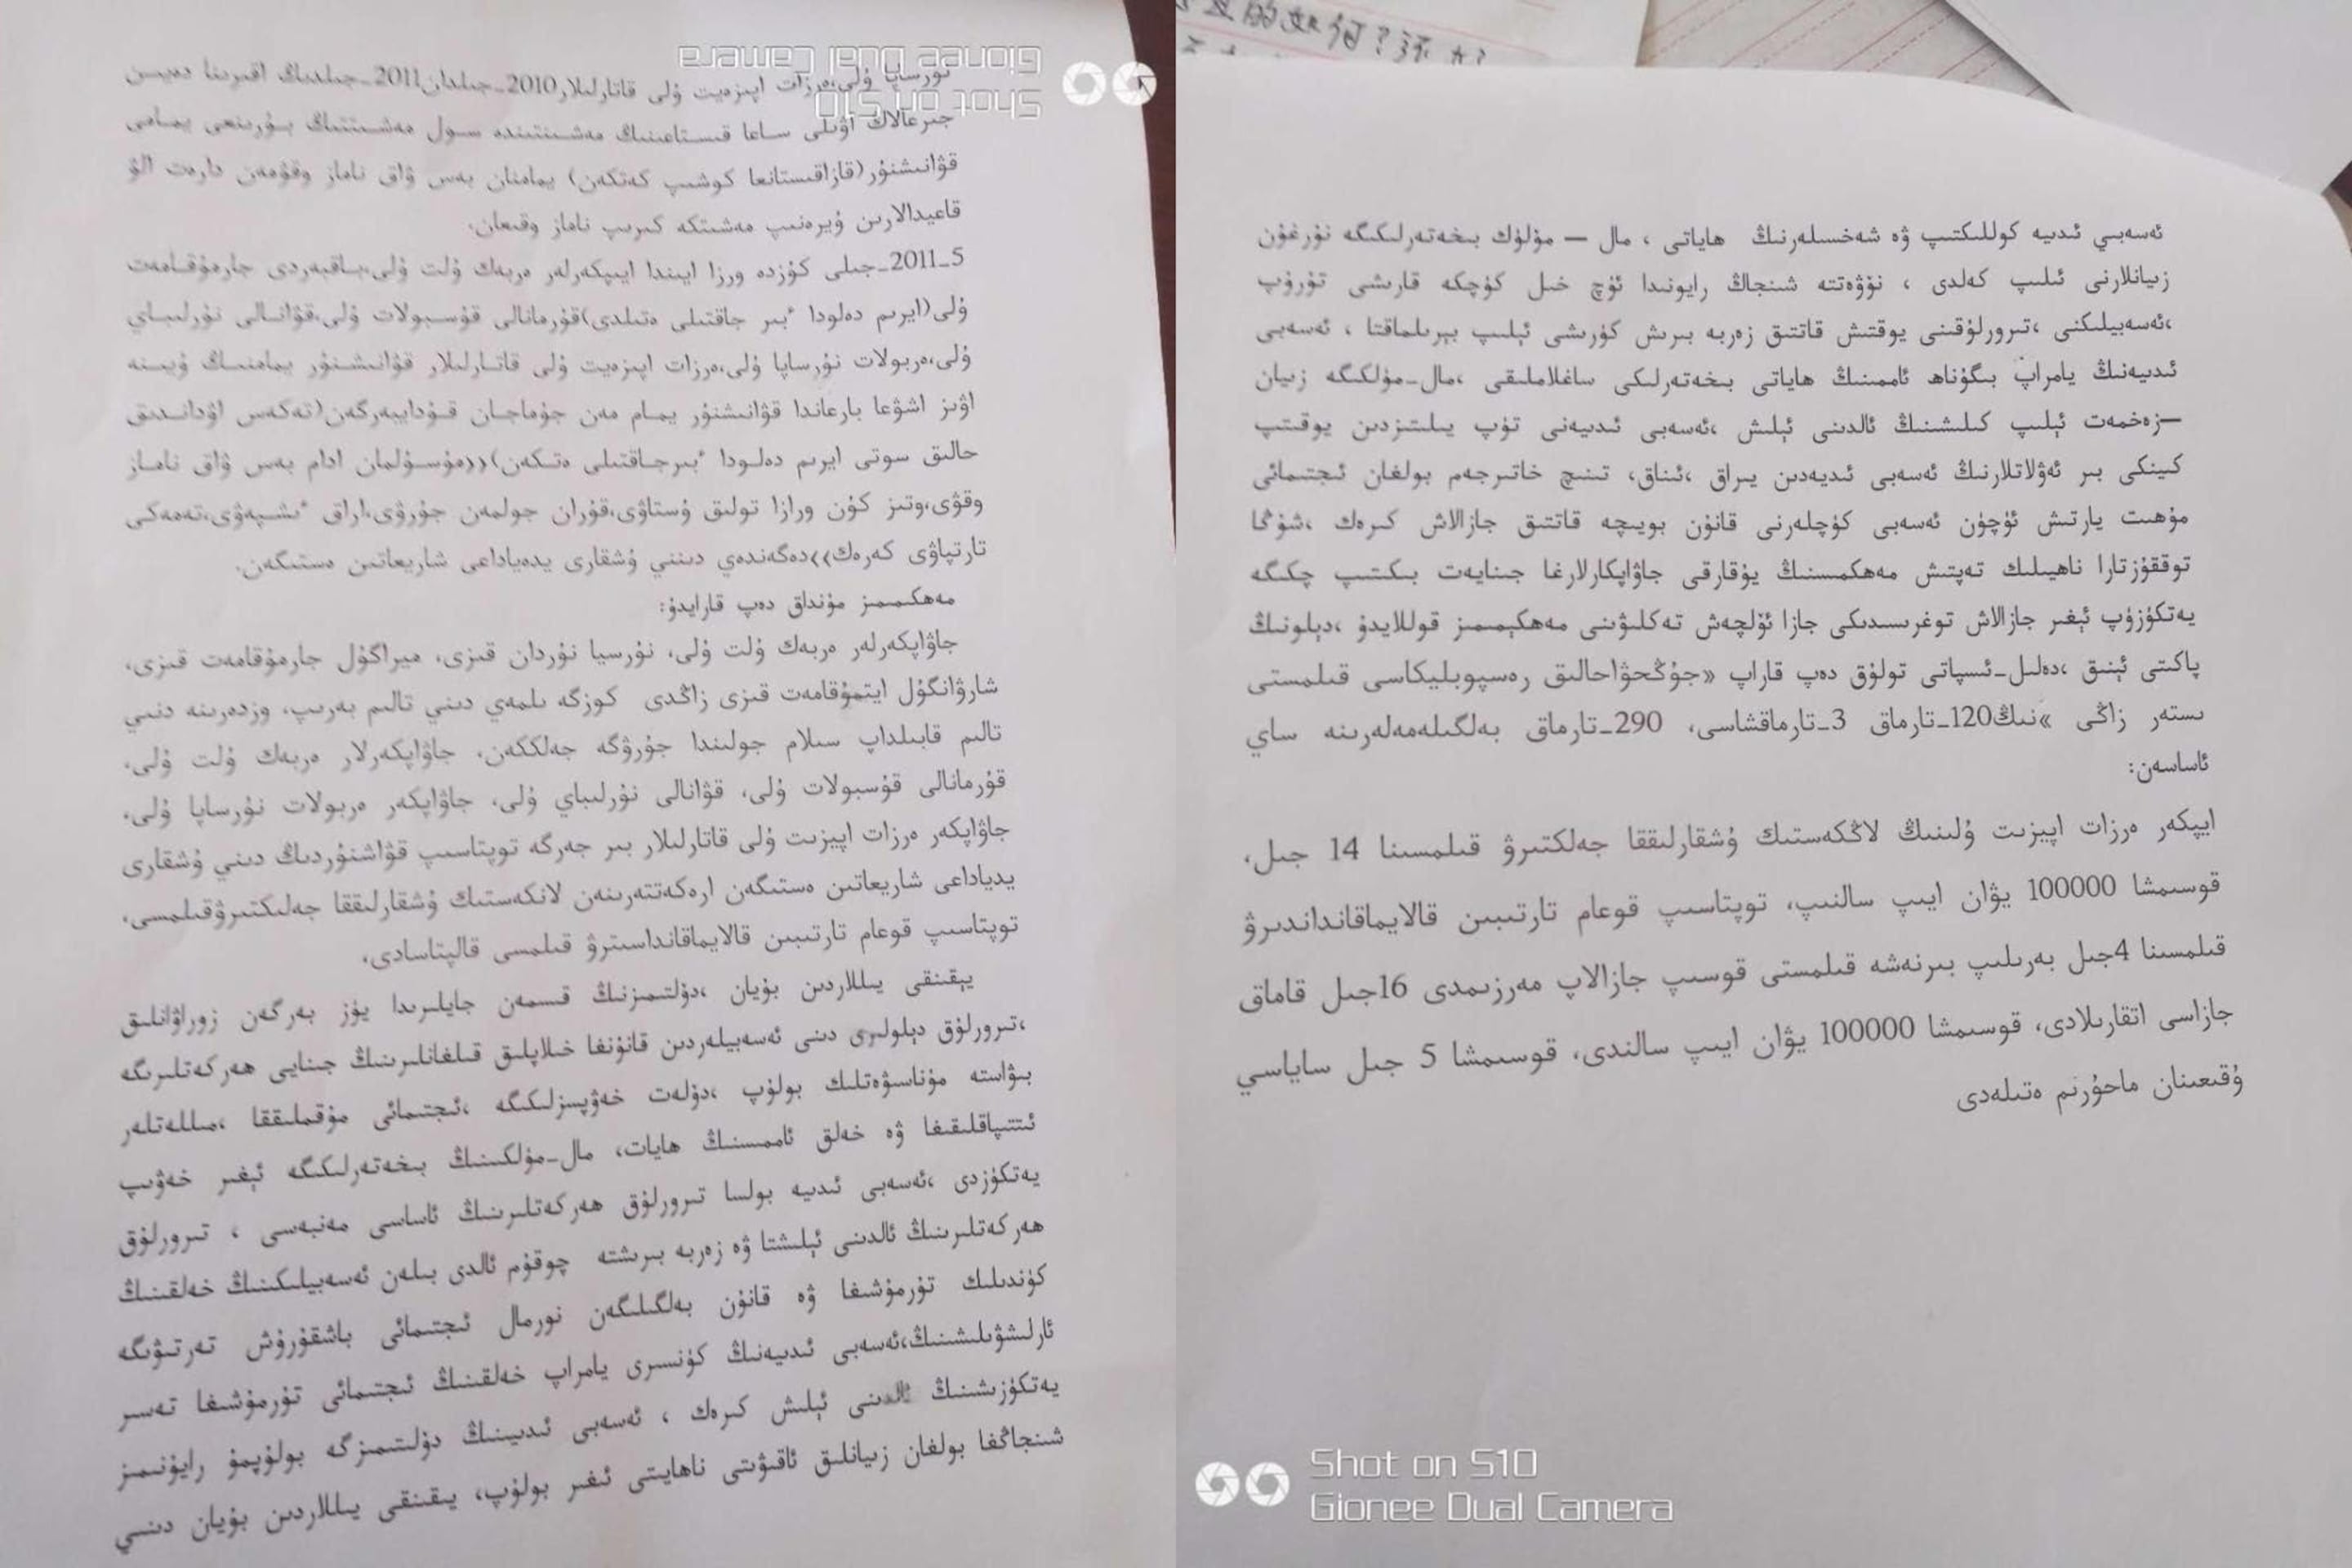 نۇرساپا ۇلى،ەرزات اپىزەيت ۇلى قاتارلىلار2010-جىلدان2011-جىلدىڭ اقىرىنا دەيىن
جىرعالاڭ اۋىلى ساعا قىستاعىنىڭ مەشىتىندە سول مەشىتتىڭ بۇرىنعى يمامى
قۋانىشنۇر(قازاقىستانعا كوشىپ كەتكەن) يمامنان بەس ۋاق ناماز وقۋمەن دارەت الۋ
قاعيدالارىن ۇيرەنىپ مەشىتكە كىرىپ ناماز وقىعان.
5-2011-جىلى كۇزدە ورزا ايىندا ايىپكەرلەر ەربەك ۇلت ۇلى،باقىبەردى جارمۇقامەت
ۇلى(ايرىم دەلودا ءبىر جاقتىلى ەتىلدى)قۇرمانالى قۇسىبولات ۇلى،قۋانالى نۇرلىباي
ۇلى،ەربولات نۇرساپا ۇلى،ەرزات اپىزەيت ۇلى قاتارلىلار قۋانىشنۇر يمامنىڭ ۇيىنە
اۋىز اشۋعا بارعاندا قۋانىشنۇر يمام مەن جۇماجان قۇدايبەرگەن(تەكەس اۋداندىق
حالىق سوتى ايرىم دەلودا ءبىرجاقتىلى ەتكەن)((مۇسۇلمان ادام بەس ۋاق ناماز
وقۋى،وتىز كۇن ورازا تولىق ۇستاۋى،قۇران جولمەن جۇرۋى،اراق ءىشپەۋى،تەمەكى
تارتپاۋى كەرەك))دەگەندەي دىنني ۇشقارى يدەياداعى شاريعاتىن ەستىگەن.
مەھكىمىمىز مۇنداق دەپ قارايدۇ:
جاۋاپكەرلەر ەربەك ۇلت ۇلى، نۇرسيا نۇردان قىزى، ميراگۇل جارمۇقامەت قىزى،
شارۋانگۇل ايتمۇقامەت قىزى زاڭدى كوزگە ىلمەي دىني تالىم بەرىپ، وزدەرىنە دىني
تالىم قابىلداپ سلام جولىندا جۇرۋگە جەلىككەن. جاۋاپكەرلار ەربەك ۇلت ۇلى،
قۇرمانالى قۇسبولات ۇلى، قۋانالى نۇرلىباي ۇلى، جاۋاپكەر ەربولات نۇرساپا ۇلى،
جاۋاپكەر ەرزات اپيزىت ۇلى قاتارلىلار بىر جەرگە توپتاسىپ قۋاشنۇردىڭ دىني ۇشقارى
يدياداعى شاريعاتىن ەستىگەن ارەكەتتەرىنەن لاڭكەستىك ۇشقارلىققا جەلىكتىرۋقىلمىسى،
توپتاسىپ قوعام تارتىبىن قالايماقانداستىرۋ قىلمىسى قالىپتاسادى.
يېقىنقى يىللاردىن بۇيان ،دۆلىتىمىزنىڭ قىسمەن جايلىرىدا يۈز بەرگەن زوراۋانلىق
،تېرورلۇق دېلولىرى دىنى ئەسەبىيلەردىن قانۇنغا خىلاپلىق قىلغانلىرىنىڭ جىنايى ھەركەتلىرىگە
بىۋاستە مۇناسىۋەتلىك بولۇپ ،دۆلەت خەۋپسىزلىكىگە ،ئىجتىمائى مۇقىملىققا ،مىللەتلەر
ئىتتىپاقلىقىغا ۋە خەلق ئاممىسىنىڭ ھايات، مال-مۈلكىنىڭ بىخەتەرلىكىگە ئېغىر خەۋىپ
يەتكۈزدى ،ئەسەبى ئىديە بولسا تېرورلۇق ھەركەتلىرىنىڭ ئاساسى مەنبەسى ، تېرورلۇق
ھەركەتلىرىنىڭ ئالدىنى ئېلىشتا ۋە زەربە بىرىشتە چوقۇم ئالدى بىلەن ئەسەبىيلىكنىڭ خەلقىنىڭ
كۈندىلىك تۇرمۇشىغا ۋە قانۇن بەلگىلىگەن نورمال ئىجتىمائى باشقۇرۇش تەرتىۋىگە
ئارلىشىۋىلىشىنىڭ،ئەسەبى ئىديەنىڭ كۈنسېرى يامراپ خەلقىنىڭ ئىجتىمائى تۇرمۇشىغا تەسىر
يەتكۈزىشىنىڭ ئالدىنى ئېلىش كىرەك ، ئەسەبى ئىدىينىڭ دۆلىتىمىزگە بولۇپمۇ رايۇنىمىز
شىنجاڭغا بولغان زىيانلىق ئاقىۋىتى ناھايىتى ئىغىر بولۇپ، يىقىنقى يىللاردىن بۇيان دىنىي
ئەسەبىي ئىديە كوللىكتىپ ۋە شەخسىلەرنىڭ ھاياتى ، مال — مۈلۈك بىخەتەرلىكىگە نۇرغۇن
زىيانلارنى ئىلىپ كەلدى ، نۆۋەتتە شىنجاڭ رايونىدا ئۈچ خىل كۈچكە قارىشى تۇرۇپ
،ئەسەبىيلىكنى ،تىرورلۇقنى يوقىتىش قاتتىق زەربە بىرىش كۈرىشى ئېلىپ بېرىلماقتا ، ئەسەبى
ئىديەنىڭ يامراپ بىگۇناھ ئاممىنىڭ ھاياتى بىخەتەرلىكى ساغلاملىقى ،مال-مۈلكىگە زىيان
—زەخمەت ئېلىپ كىلىشىنىڭ ئالدىنى ئېلىش ،ئەسەبى ئىديەنى تۈپ يىلتىزدىن يوقىتىپ
كىينكى بىر ئەۋلاتلارنىڭ ئەسەبى ئىديەدىن يىراق ،ئىناق، تىنىچ خاتىرجەم بولغان ئىجتىمائى
مۇھىت يارتىش ئۈچۈن ئەسەبى كۈچلەرنى قانۇن بويىچە قاتتىق جازالاش كىرەك ،شۇڭا
توققۇزتارا ناھىيىلىك تەپتىش مەھكىمىسىنىڭ يۇقارقى جاۋاپكارلارغا جىنايەت بىكىتىپ چىكىگە
يەتكۈزۈپ ئېغىر جازالاش توغرىسىدىكى جازا ئۆلچەش تەكلىۋىنى مەھكىمىمىز قوللايدۇ ،دېلونىڭ
پاكىتى ئېنىق ،دەلىل-ئىسپاتى تولۇق دەپ قاراپ «جۇڭحۋاحالىق رەسپوبليكاسى قىلمىستى
ىستەر زاڭى »نىڭ120-تارماق 3-تارماقشاسى، 290-تارماق بەلگىلەمەلەرىنە ساي
ئاساسەن:
ايپكەر ەرزات اپيزىت ۇلىنىڭ لاڭكەستىك ۇشقارلىققا جەلكتىرۋ قىلمىسىنا 14 جىل،
قوسىمشا 100000 يۋان ايىپ سالىنىپ، توپتاسىپ قوعام تارتىبىن قالايماقانداندىرۋ
قىلمىسىنا 4جىل بەرىلىپ بىرنەشە قىلمىستى قوسىپ جازالاپ مەرزىمدى 16جىل قاماق
جازاسى اتقارىلادى، قوسىمشا 100000 يۋان ايىپ سالىندى، قوسىمشا 5 جىل ساياسي
ۇقىعىنان ماحۇرىم ەتىلەدى
Shot on S10
Gionee Dual Camera